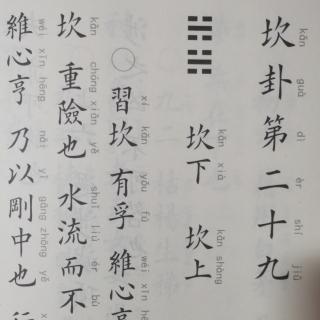 kǎn guà dì èr shí jiǔ
坎卦第二十九
kǎn xià kǎn shàng
坎下 坎上
xí kǎn yǒu fú wéi xīn hēng
習坎 有孚 維心亨
kǎn chóng xiǎn yě shuǐ liú ér bù
坎 重險也 水流而不
wéi xīn hēng nǎi yǐ gāng zhōng yě
維心亨 乃以剛中也